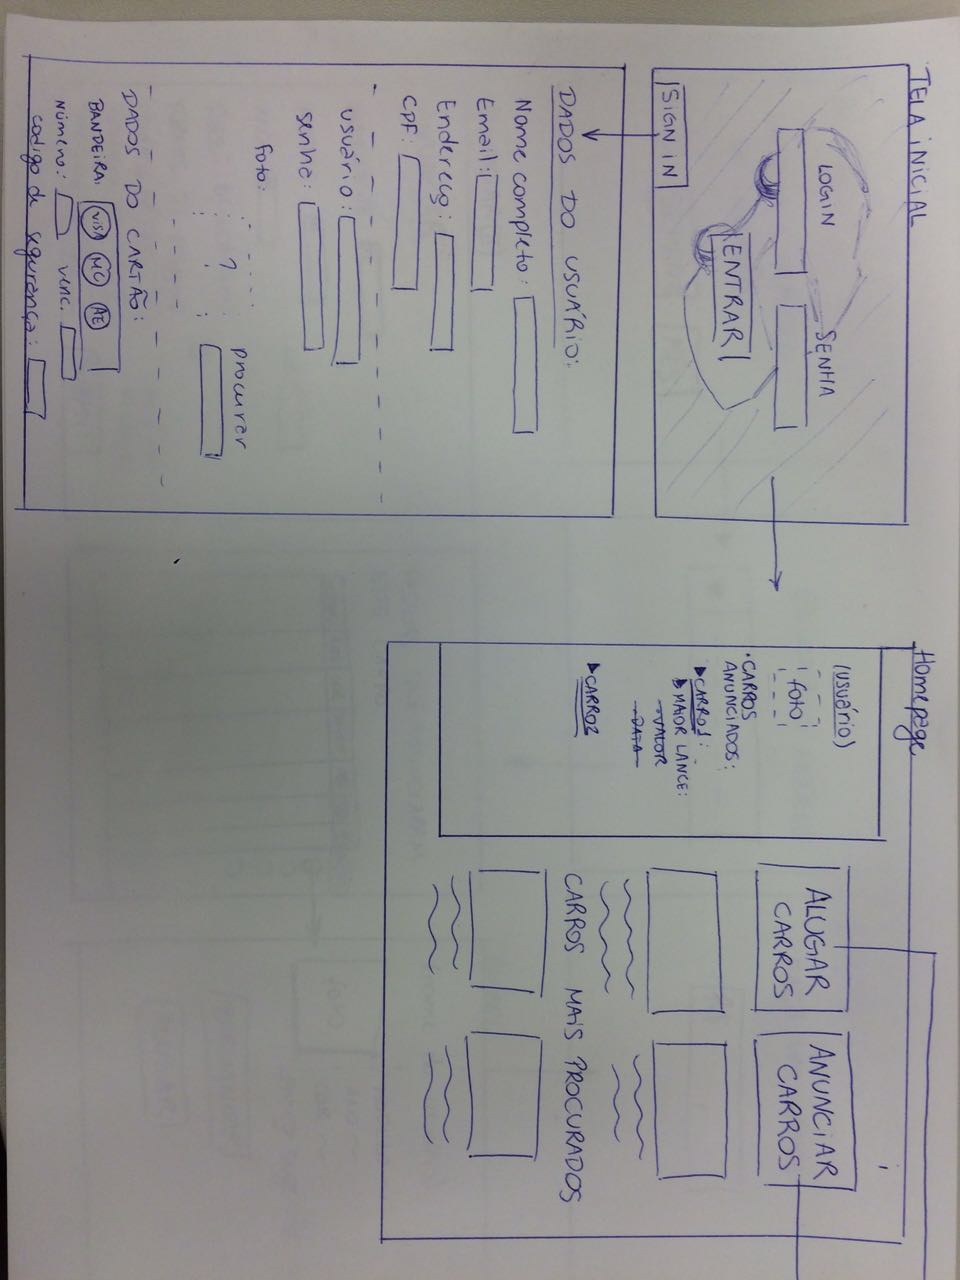 TELA INICIAL
LOGIN
SENHA
ENTRAR
SIGN IN
DADOS DO USUÁRIO:
Nome completo:
Email:
Endereço:
CPF:
usuário:
senha:
foto:
?
procurar
DADOS DO CARTÃO:
BANDEIRA: VISA MC AE
Número: venc.
codigo de segurança:
Homepage
(usuário)
FOTO
• CARROS
ANUNCIADOS:
CARRO1:
MAIOR LANCE:
VALOR
DATA
CARRO2
ALUGAR
CARROS
ANUNCIAR
CARROS
CARROS MAIS PROCURADOS